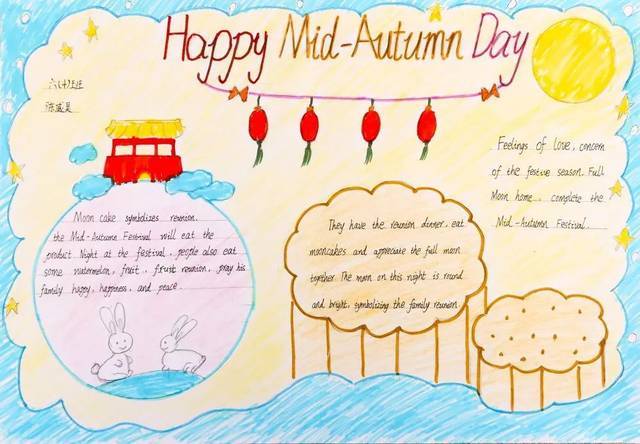 Happy Mid-Autumn Day
Moon cake symbolizes reunion.
the Mid-Autumn Festival will eat the
product Night at the festival, people also eat
some watermelon, fruit, fruit reunion, pray his
family happy, happiness, and peace.
They have the reunion dinner, eat
mooncakes and appreciate the full moon
together. The moon on this night is round
and bright, symbolizing the family reunion.
Feelings of love, concern
of the festive season. Full
Moon home, complete the
Mid-Autumn Festival.